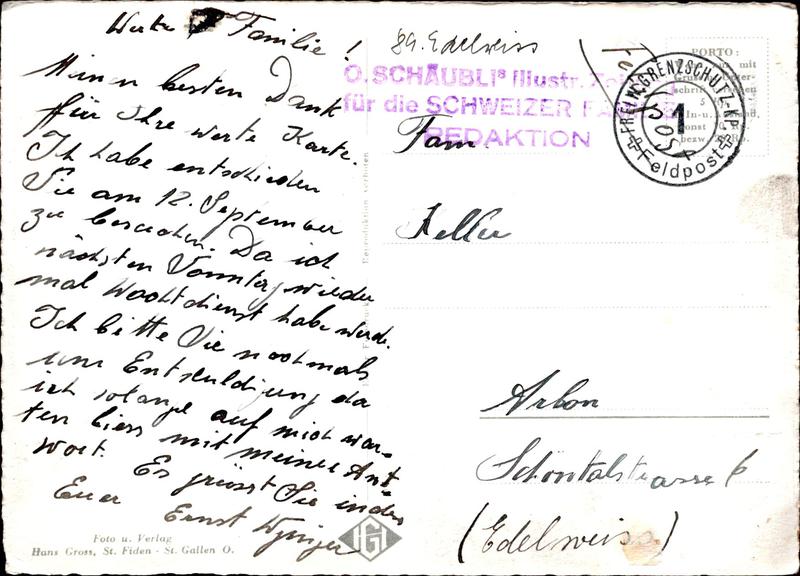 Werte Familie!
Meinen besten Dank
für Ihre werte Karte.
Ich habe entschieden
Sie am 12. September
zu besuchen. Da ich
nächsten Sonntag wieder
mal Wachtdienst habe werde.
Ich bitte Sie nochmals
um Entschuldjung da
ich solange auf mich war-
ten liess mit meiner Ant-
wort. Es grüsst Sie indes
Euer Ernst
Foto u. Verlag
Hans Gross, St. Fiden - St. Gallen O.
HGI
89. Edelweiss
O. SCHÄUBLIs Illustr.
für die SCHWEIZER
REDAKTION
PORTO:
FREIW. GRENZSCHUTZ-KP.
1
Feldpost
Fam.
Keller
Arbon
Schöntalstrasse 6
(Edelweiss)